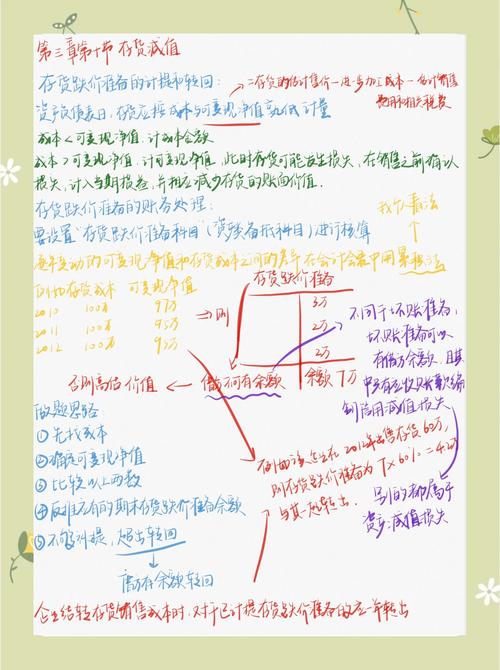 第三章第十节 存货减值
存货跌价准备的计提和转回:
=存货的估计售价-进一步加工成本-估计销售
费用和相关税费
资产负债表日,存货应按成本与可变现净值孰低计量
成本<可变现净值,计成本金额
成本>可变现净值,计可变现净值,此时存货可能发生损失,在销售之前确认
损失,计入当期损益,并相应减少存货的账面价值.
存货跌价准备的账务处理:
要设置"存货跌价准备科目"(资产类备抵科目)进行核算
逐年变动的可变现净值和存货成本之间的差异在会计会
存货成本 可变现净值
2010 100万 97万
2011 100万 95万
2012 100万 93万
⇒则
存货跌价准备
3万
2万
2万
余额7万
借方不可有余额
否则高估价值
不同于坏账准备,
坏账准备可以
有借方余额,且其
信用减值损失
别的都属于
资产减值损失
做题思路:
①先找成本
②确定可变现净值
③比较以上两数
④反推应有的期末存货跌价准备余额
⑤不够补提,超出转回
高于存余额转回
例如该企业在2012年出售存货60万,
则存货跌价准备为7×60%=4.2万
与其一起转出.
企业结转存货销售成本时,对于已计提存货跌价准备的应一并转出